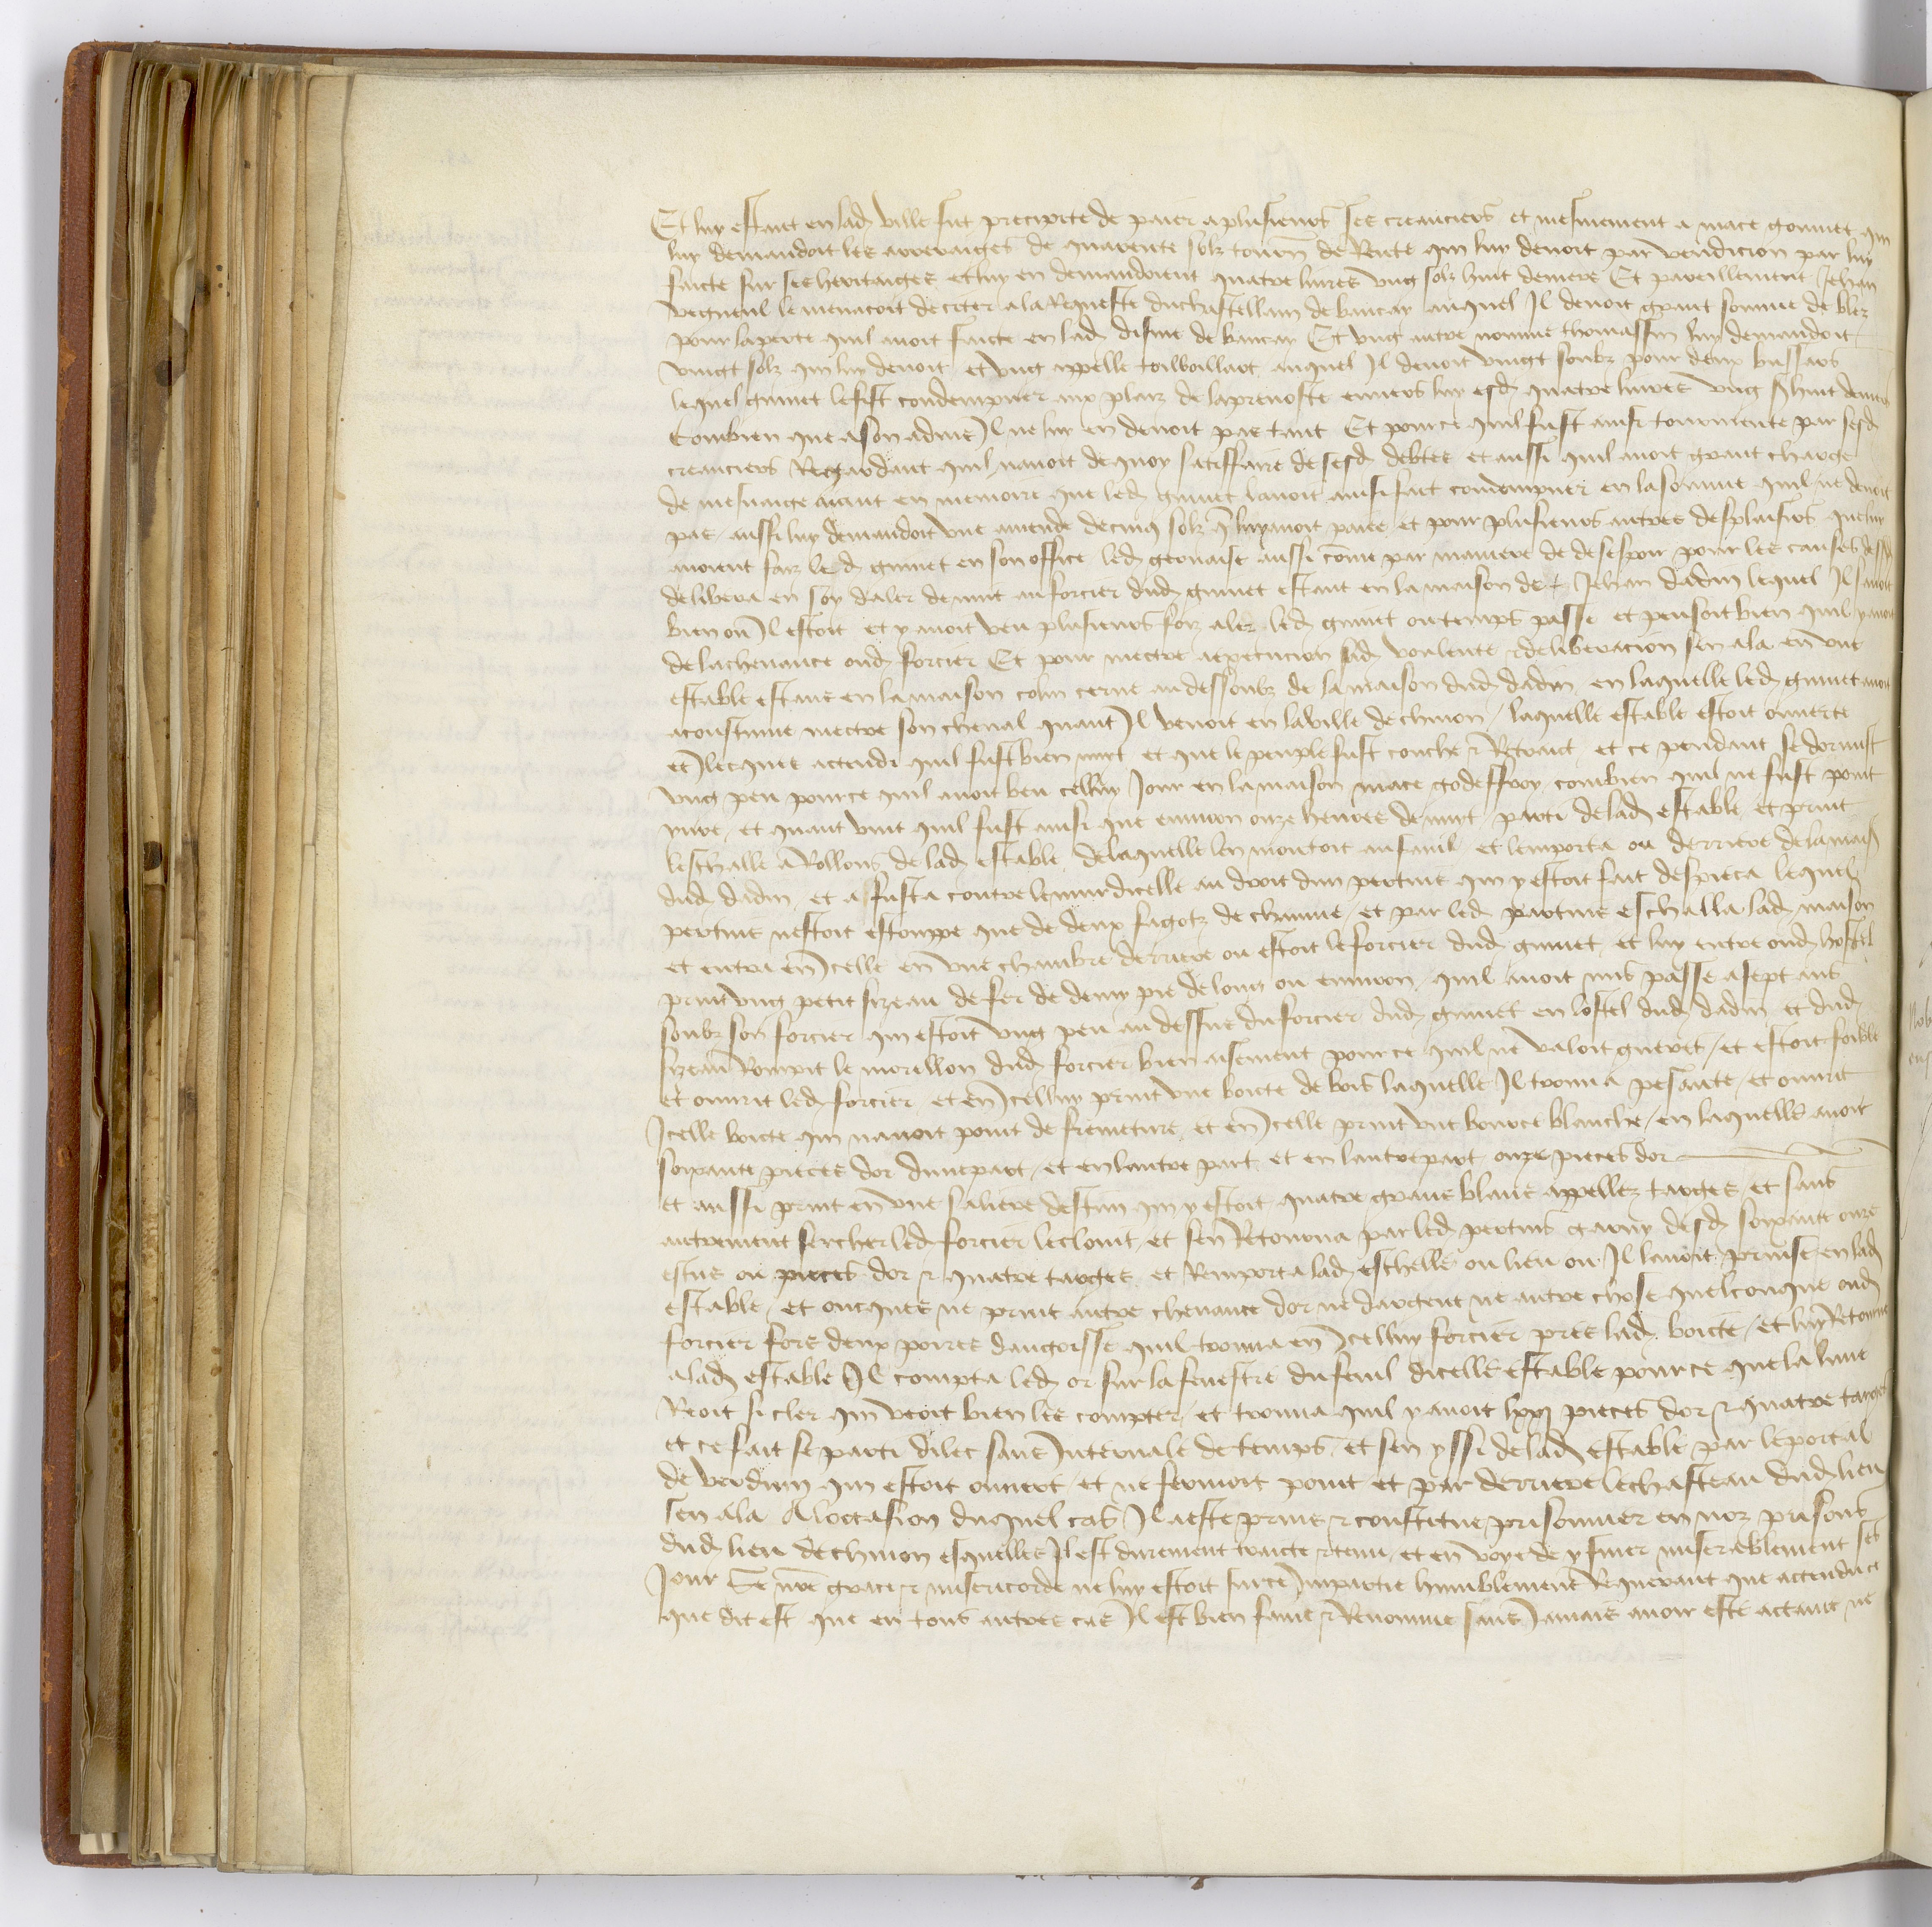 Et luy estant en lad ville fut precipite de paier a plusieurs ses creanciers et mesmement a mace gounet qui
luy demandoit les arreraiges de quarente solz tourn de Rente qui luy devoit par vendicion par luy
faicte sur ses heritaiges et luy en demandoient quatre livres ung solz huit deniers Et pareillement Jehan
vergneul le menacoit de citer a la Requeste du chastellain de bancay auquel Il devoit grant somme de blez
pour la perte quil avoit faicte en lad disme de bancay Et ung autre nomme thomassin luy demandoit
vingt solz qui luy devoit et ung appelle auquel Il devoit vingt soubz pour deux bussars
lequel gounet le fist condempner aux plaiz de la prevoste envers luy esd quatre livres ung s huit deniers
combien que a son advis Il ne luy en devoit pas tant Et pource quil fust ainsi tourmente par sesd
creanciers Regardant quil navoit de quoy satiffaire de sesd debtes et aussi quil avoit grant charge
de mesnaige aiant en memoire que led guinet lavoit ainsi fait condempner en la somme quil ne devoit
pas aussi luy demandoit une amende de cinq solz q luy avoit paiee et pour plusieurs autres desplaisirs que luy
avoient faiz led guinet en son office led gervaise aussi come par maniere de desespoir pour les causes dessd
delibera en soy daler de nuit au forcier dud guinet estant en la maison de Jehan dadin lequel Il savoit
bien ou Il estoit et y avoit veu plusieurs foiz aler led guinet ou temps passe et pensoit bien quil y avoit
de la chevance oud forcier Et pour mectre a execucion sad voulente & deliberacion sen ala en une
estable estant en la maison colin cerne au dessoubz de la maison dud dadin en laquelle led guinet avoit
acoustume mectre son cheval quant Il venoit en la ville de chinon laquelle estable estoit ouverte
et Illecques actendi quil fust bien nuit et que le peuple fust couche & Retrait et ce pendant se dormist
ung peu pource quil avoit beu celluy Jour en la maison mace godeffroy combien quil ne fust point
yvre et quant vint quil fust ainsi que environ onze heures de nuit parti de lad estable et print
leschalle a Rollons de lad estable de laquelle len montoit au fanil et lemporta ou derriere de la mais
dud dadin et assusta contre le mur dicelle au droit dun pertuis qui y estoit fait despieca lequel
pertuis nestoit estouppe que de deux fagotz de chaume et par led partuis eschalla lad maison
et entra en Icelle en une chambre derriere ou estoit le forcier dud guinet et luy entre oud hostel
print ung petit sizeau de fer de demy pie de long ou environ quil avoit mis passe a sept ans
soubz son forcier qui estoit ung peu au dessus du forcier dud guinet en lostel dud dadin et dud
sizeau Rompit le morillon dud forcier bien aisement pource quil ne valoit gueres et estoit foible
et ouvrit led forcier et en Icelluy print une boicte de bois laquelle Il trouva pesante et ouvrit
Icelle boicte qui navoit point de fremeture et en Icelle print une bource blanche en laquelle avoit
soixante pieces dor dune part et en lautre part et en lautre part onze pieces dor
et aussi print en une saliere destain qui y estoit quatre grans blans appellez targes et sans
autrement sercher led forcier le clouit et sen Retourna par led pertuis garny desd soixante onze
escus ou pieces dor & quatre targes et Remporta lad eschelle ou lieu ou Il lavoit prinse en lad
estable et oncques ne print autre chevance dor ne dargent ne autre chose quelconque oud
forcier fors deux poires dangoisse quil trouva en Icelluy forcier pres lad boicte et luy Retourne
a lad estable Il compta led or sur la fenestre du fenil dicelle estable pource que la lune
Reoit si cler qui veoit bien les compter et trouva quil y avoit lxxj pieces dor & quatre targes
et ce fait se parti dilec sans Intervale de temps et sen yssi de lad estable par le portal
de verdum qui estoit ouvert et ne fermoit point et par derriere le chasteau dud lieu
sen ala A loccasion duquel cas Il a este prins & constitue prisonnier en noz prisons
dud lieu de chinon esquelles Il est durement traicte & tenu et en voye de y finer miserablement ses
Jour Se nre grace & misericorde ne luy estoit sur ce Impartie humblement Requerant que actendu ce
que dit est que en tous autres cas Il est bien fame & Renomme sans Jamais avoir este actaint ne